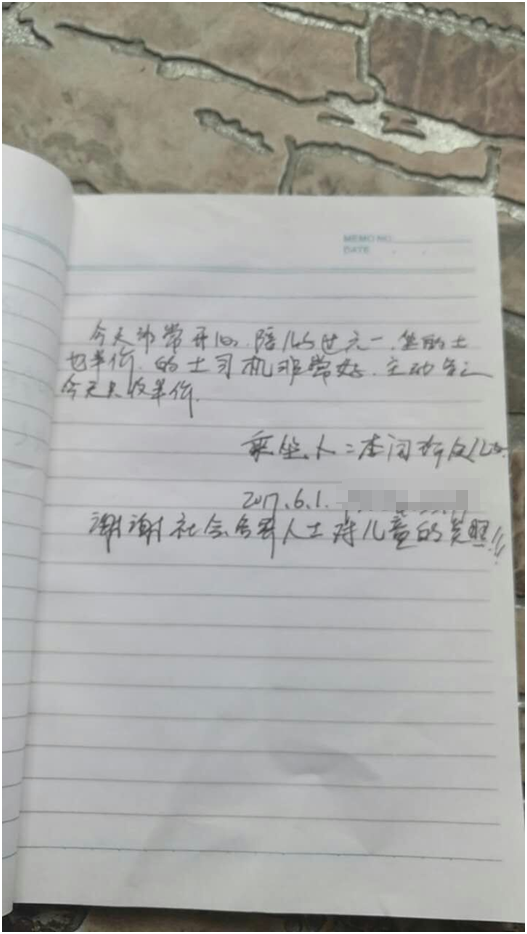 MEMO NO.
DATE
今天非常开心.陪儿子过六一.坐的士
也半价.的士司机非常好.主动告之
今天只收半价.
乘坐人:李闰
2017.6.1.
谢谢社会各界人士对儿童的关照!!!